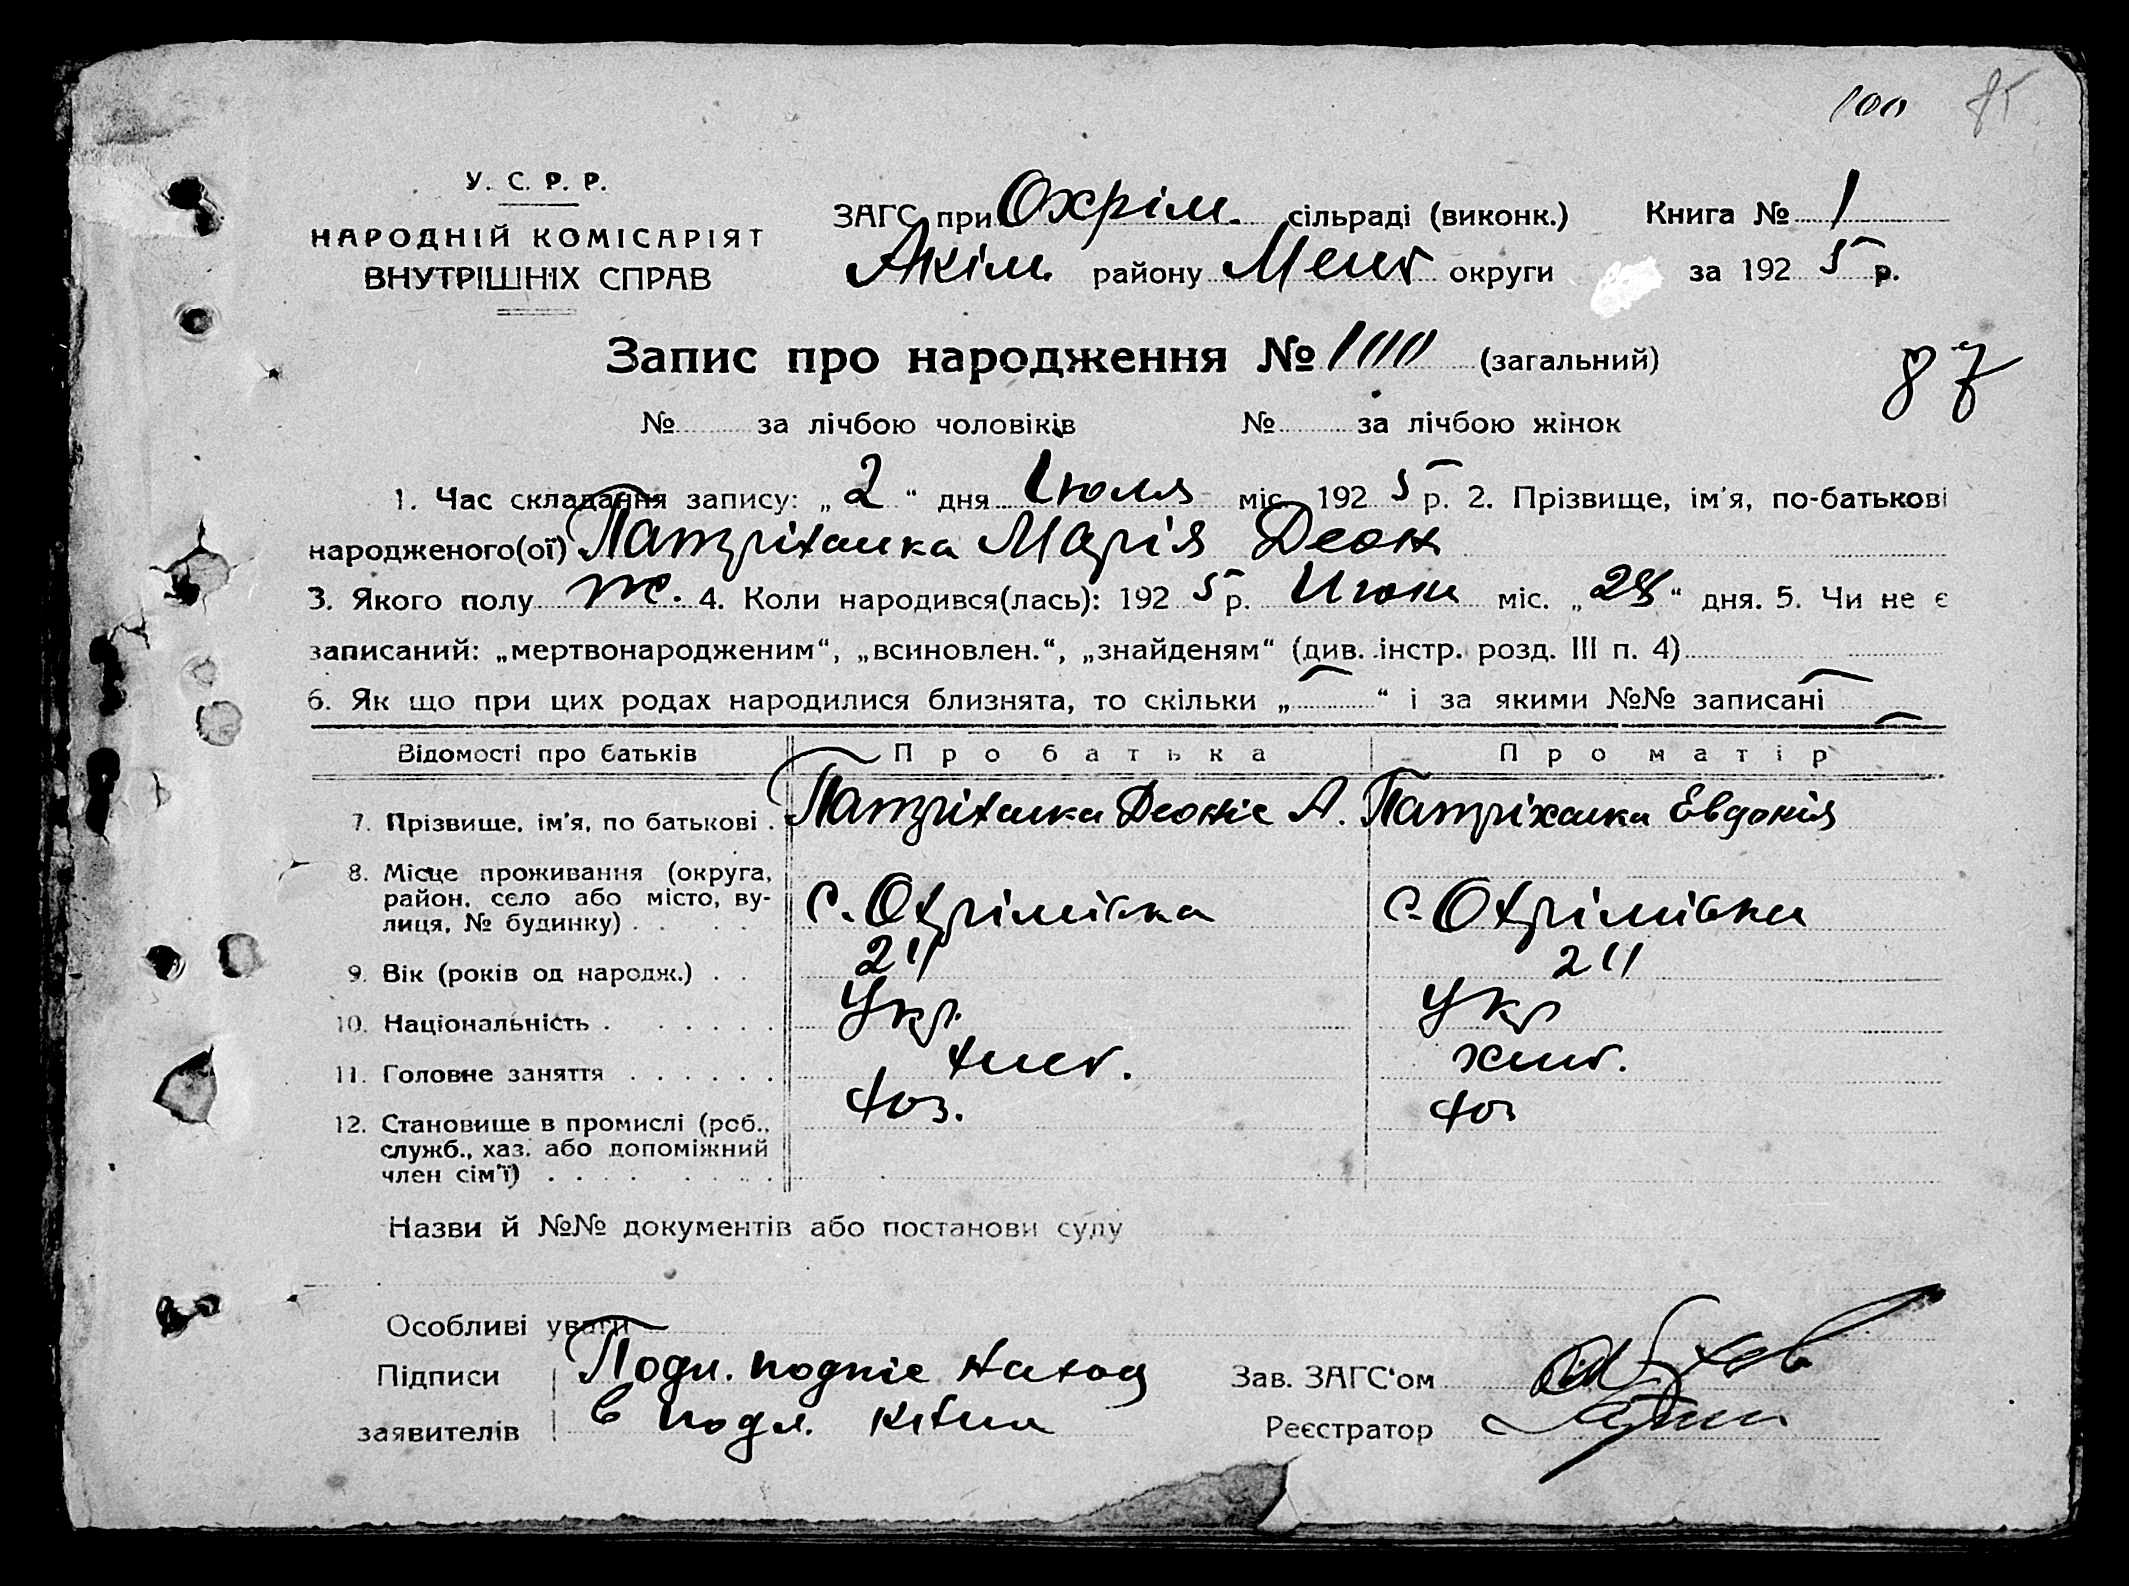 100 85
У. С. Р. Р.
НАРОДНІЙ КОМІСАРІЯТ
ВНУТРІШНІХ СПРАВ
ЗАГС при Охрім. сільраді (виконк.) Книга № 1
Акім. району Меліт округи за 1925 р.
Запис про народження № 100 (загальний)
87
№ за лічбою чоловіків № за лічбою жінок
1. Час складання запису: „2“ дня Июля міс. 1925 р. 2. Прізвище, ім'я, по-батькові
народженого(ої) Патріхалка Марія Деон
3. Якого полу ж. 4. Коли народився(лась): 1925 р. Июня міс. „28“ дня. 5. Чи не є
записаний: „мертвонародженим“, „всиновлен.“, „знайденям“ (див. інстр. розд. III п. 4)
6. Як що при цих родах народилися близнята, то скільки „ “ і за якими №№ записані
Відомості про батьків Про батька Про матір
7. Прізвище, ім'я, по батькові . Патріхалка Деоніс А. Патріхалка Евдокія
8. Місце проживання (округа,
район, село або місто, ву-
лиця, № будинку) . . . . с. Охрімівка с. Охрімівка
9. Вік (років од народж.) . . 24 24
10. Національність . . . . . . Укр. Укр
11. Головне заняття . . . . . . хліб. хліб.
12. Становище в промислі (роб.,
служб., хаз. або допоміжний
член сім'ї) . . . . . . . . хоз. хоз
Назви й №№ документів або постанови суду
Особливі уваги
Підписи Подл. подпіс наход
заявителів в подл. кніги
Зав. ЗАГС'ом
Реєстратор